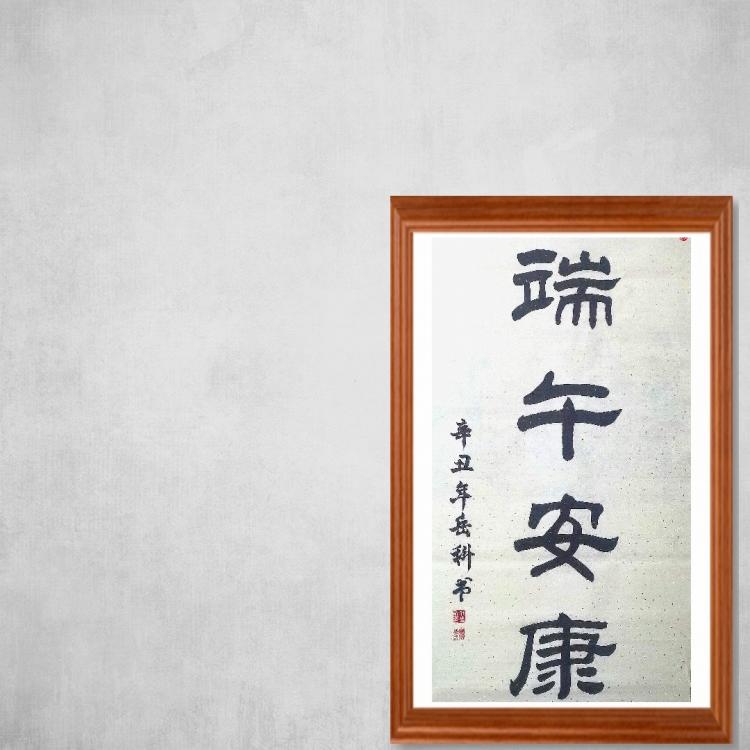 端午安康
辛丑年岳科书